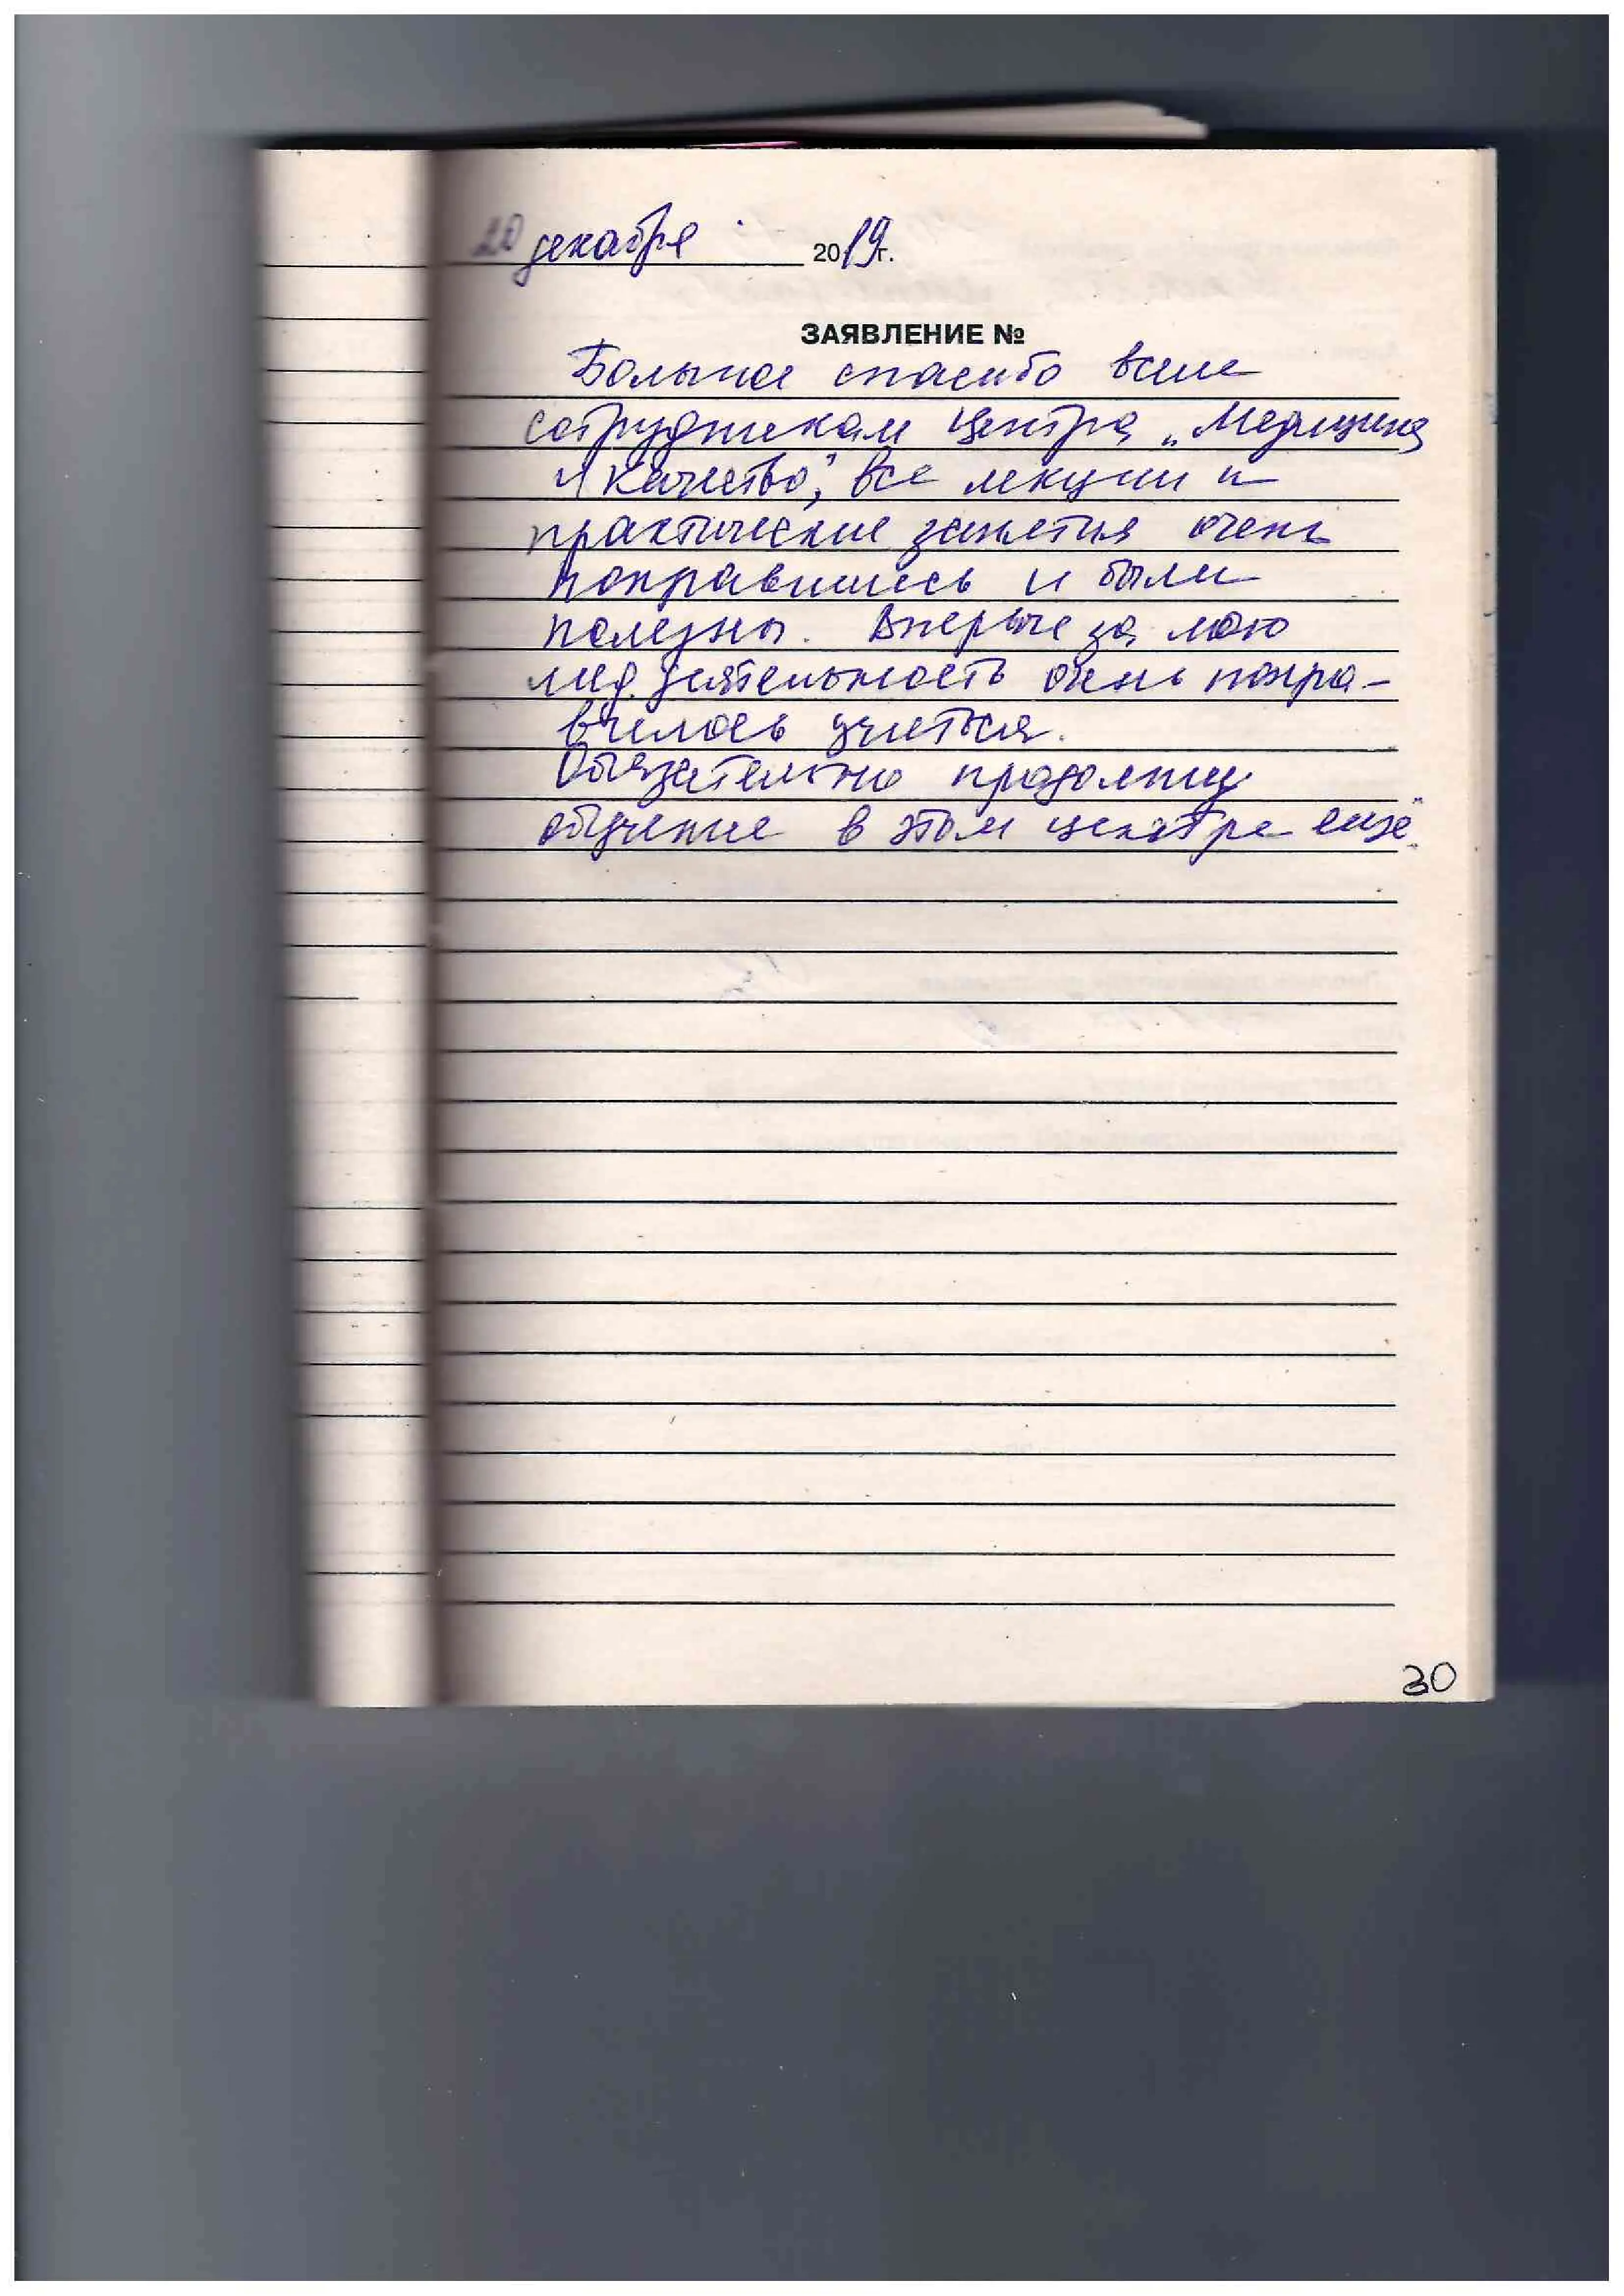 20 декабря 2019г.
ЗАЯВЛЕНИЕ №
Большое спасибо всем
сотрудникам Центра „Медицина
и Качество", все лекции и
практические занятия очень
понравились и были
полезны. Впервые за мою
мед. деятельность очень понра-
вилось учиться.
Обязательно продолжу
обучение в этом центре ещё.
30